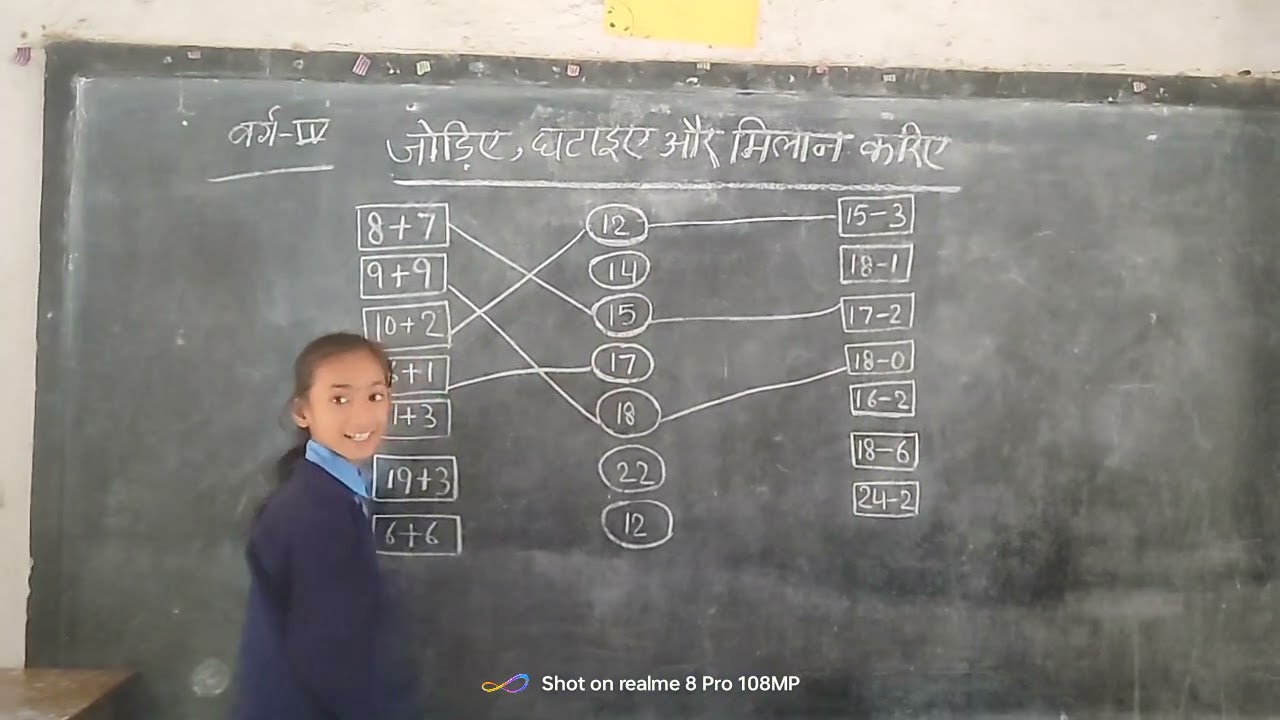 वर्ग-IV जोड़िए, घटाइए और मिलान करिए
8+7 12 15-3
9+9 14 18-1
10+2 15 17-2
+1 17 18-0
1+3 18 16-2
19+3 22 18-6
6+6 12 24-2
Shot on realme 8 Pro 108MP